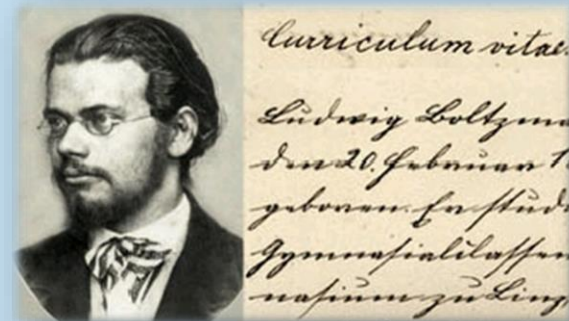 Curriculum vitae.
Ludwig Boltzma
den 20. Februar 1
geboren. Er stud
Gymnasialklassen
nasium zu Linz,